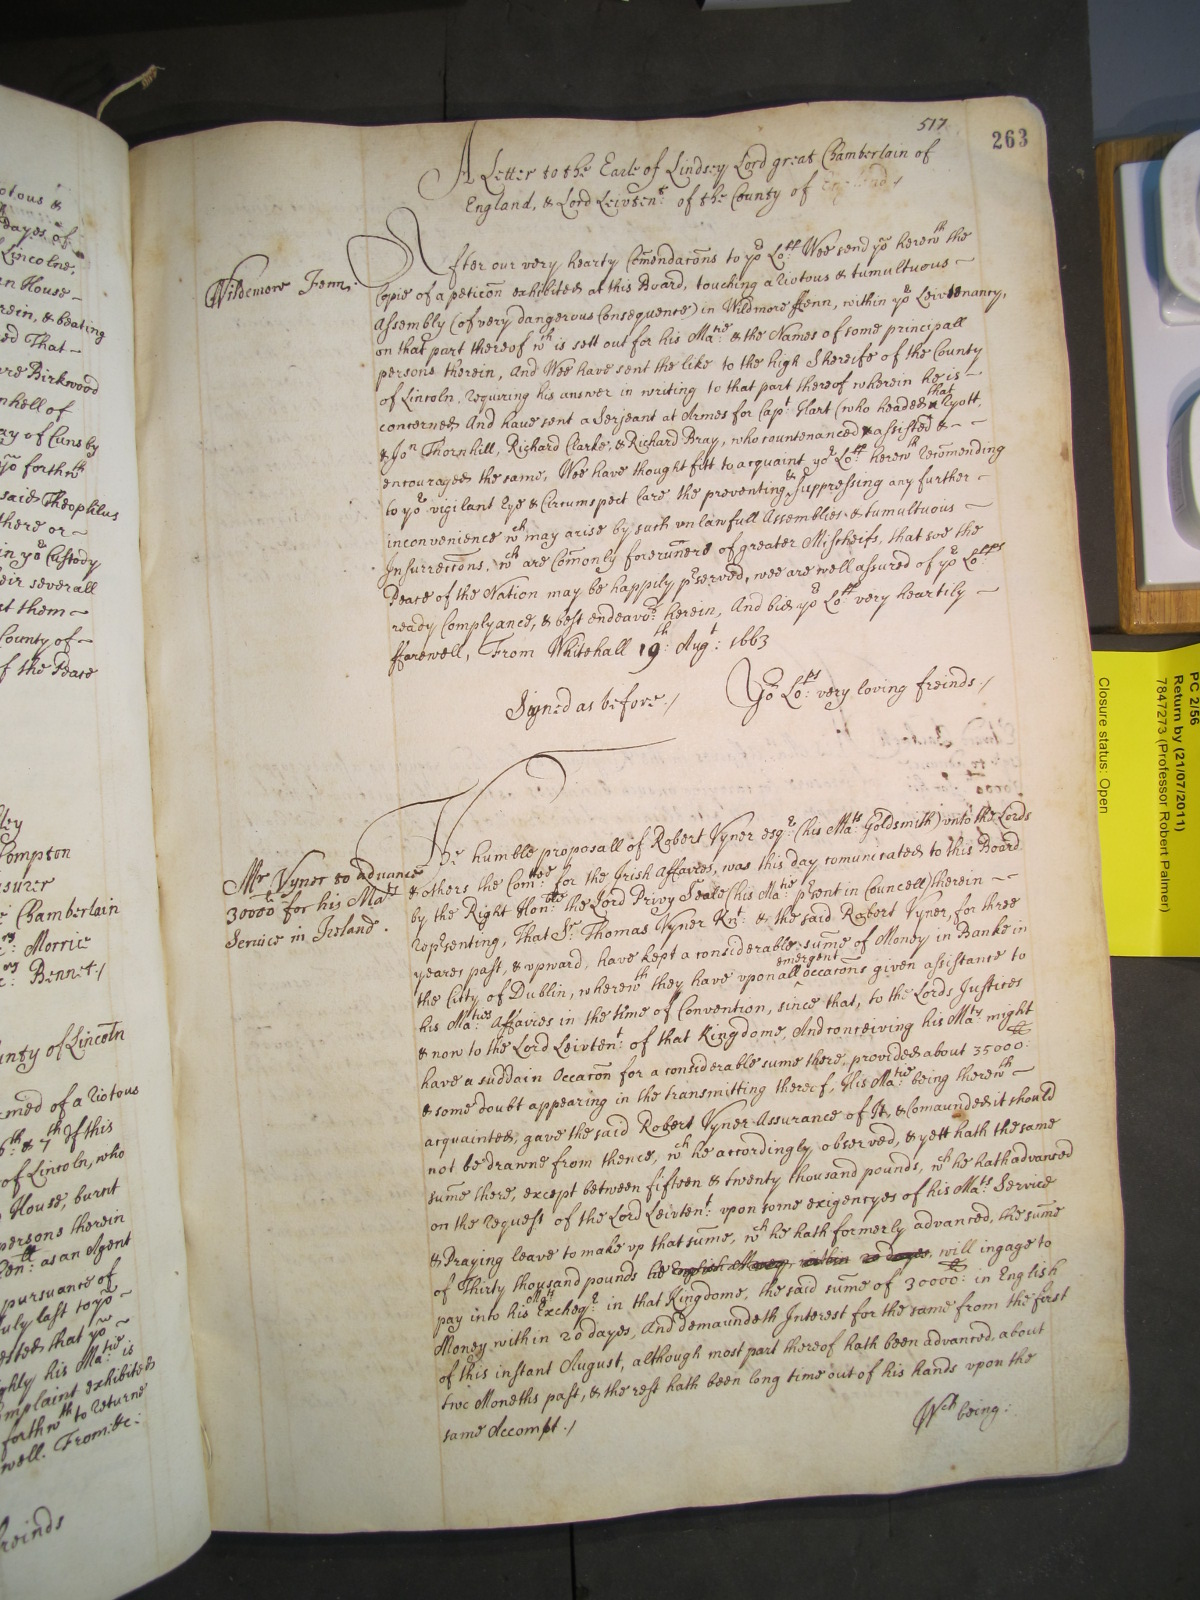 otous &
dayes of
Lincolne,
n House -
rein, & beating
ed That -
re Birkwood
nhell of
ay of Cuns by
yo forthwth
said Theophilus
there or -
in yor Custody
eir severall
st them -
County of -
f the Peace
ley
Compton
surer
Chamberlain
Morrice
Bennet /
unty of Lincoln
rmed of a Riotous
6th & 7th If this
of Lincoln, who
House, burnt
persons therein
Gentt: as an Agent
pursuance of
July last to yor -
ested that yor -
ghly his Matie is
omplaint exhibited
forthwth to returne
well. From &c:
freinds
517
263
A Letter to the Earle of Lindsey Lord great Chamberlain of
England, & Lord Leivtent: of the County of
Wildemore Fenn.
After our very hearty Comendacons to yor Lopp Wee send yor herewth the
Copie of a peticon exhibited at this Board, touching a Riotous & tumultuous -
Assembly (of very dangerous Consequence) in Wildmore ffenn, within yor Leivtenancy,
on that part thereof wch is sett out for his Matie: & the Names of some principall
persons therein, And Wee have sent the like to the high Shereife of the County
of Lincoln, requiring his answer in writing to that part thereof wherein he is -
concerned And have sent a Serjeant at Armes for Capt: Hart (who headed that Ryott,
& Jon Thornhill, Richard Clarke, & Richard Bray, who countenanced & assisted & - -
encouraged the same, Wee have thought fitt to acquaint yor Lopp herewth Recomending
to yor vigilant Eye & Circumspect Care the preventing & Suppressing any further -
inconvenience wch may arise by such vnlawfull Assemblies & tumultuous -
Insurrections, wch are Comonly forerunners of greater Mischeifs, that soe the
Peace of the Nation may be happily pserved, wee are well assured of yor Lopps
ready Complyance, & best endeavrs: herein, And bid yor Lopp: very heartily -
ffarewell, From Whitehall 19th: Augt: 1663
Signed as before /
Yor Lopps: very loving freinds /
Mr Vyner to advance
30000 for his Mats
Service in Ireland.
The humble proposall of Robert Vyner esqr: (his Mats: Goldsmith) vnto the Lords
& others the Comttee: for the Irish Affaires, was this day comunicated to this Board
by the Right Honble: the Lord Privy Seale (his Matie psent in Councell) therein - -
Repsenting, That Sr: Thomas Vyner Knt: & the said Robert Vyner, for three
yeares past, & vpward, have kept a considerable sume of Money in Banke in
the Citty of Dublin, wherewth they have vpon all emergent occacons given assistance to
his Maties: Affaires in the time of Convention, since that, to the Lords Justices
& now to the Lord Leivtent: of that Kingdome, And conceiving his Maty: might
have a suddain Occacon for a considerable sume there, provided about 35000:
& some doubt appearing in the transmitting thereof, His Matie: being therewth -
acquainted, gave the said Robert Vyner Assurance of It, & Comaunded it should
not be drawne from thence, wch he accordingly observed, & yett hath the same
sume there, except between fifteen & twenty thousand pounds, wch he hath advanced
on the request of the Lord Leivtent: vpon some exigencyes of his Mats: Service
& Praying leave to make vp that sume, wch he hath formerly advanced, the sume
of Thirty thousand pounds he English Money, within 20 dayes, will ingage to
pay into his Mats Excheqr: in that Kingdome, the said sume of 30000: in English
Money within 20 dayes, And demaundeth Interest for the same from the first
of this instant August, although most part thereof hath been advanced, about
two Moneths past, & the rest hath been long time out of his hands vpon the
same Accompt. /
Wch being:
PC 2/56
Return by (21/07/2011)
7847273 (Professor Robert Palmer)
Closure status: Open